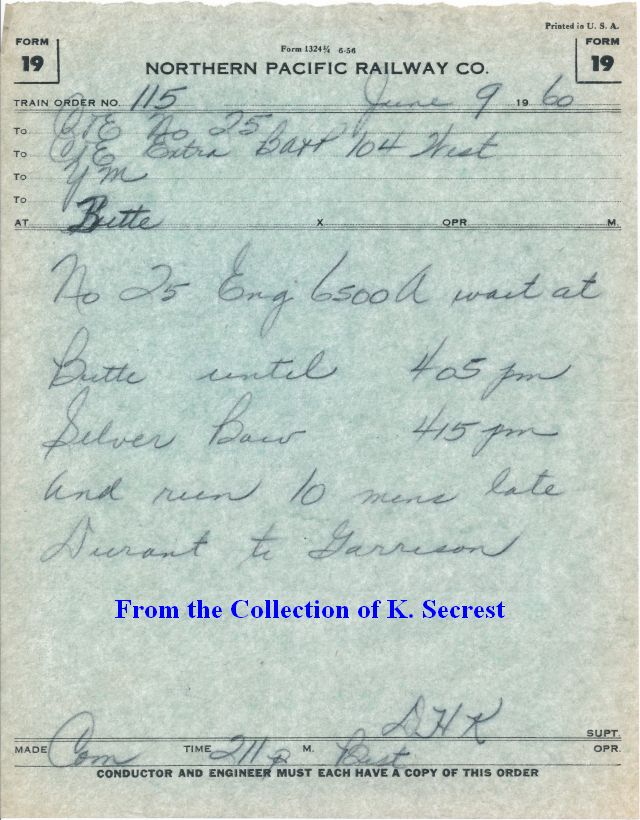 Printed in U. S. A.
FORM 19
Form 1324¾ 6-56
FORM 19
NORTHERN PACIFIC RAILWAY CO.
TRAIN ORDER NO. 115 June 9 1960
To C&E No 25
To C&E Extra BAXP 104 West
To YM
To
AT Butte X OPR M.
No 25 Eng 6500A wait at
Butte until 405 pm
Silver Bow 415 pm
and run 10 mins late
Durant to Garrison
From the Collection of K. Secrest
DHK SUPT.
MADE Com TIME 211 p M. Best OPR.
CONDUCTOR AND ENGINEER MUST EACH HAVE A COPY OF THIS ORDER